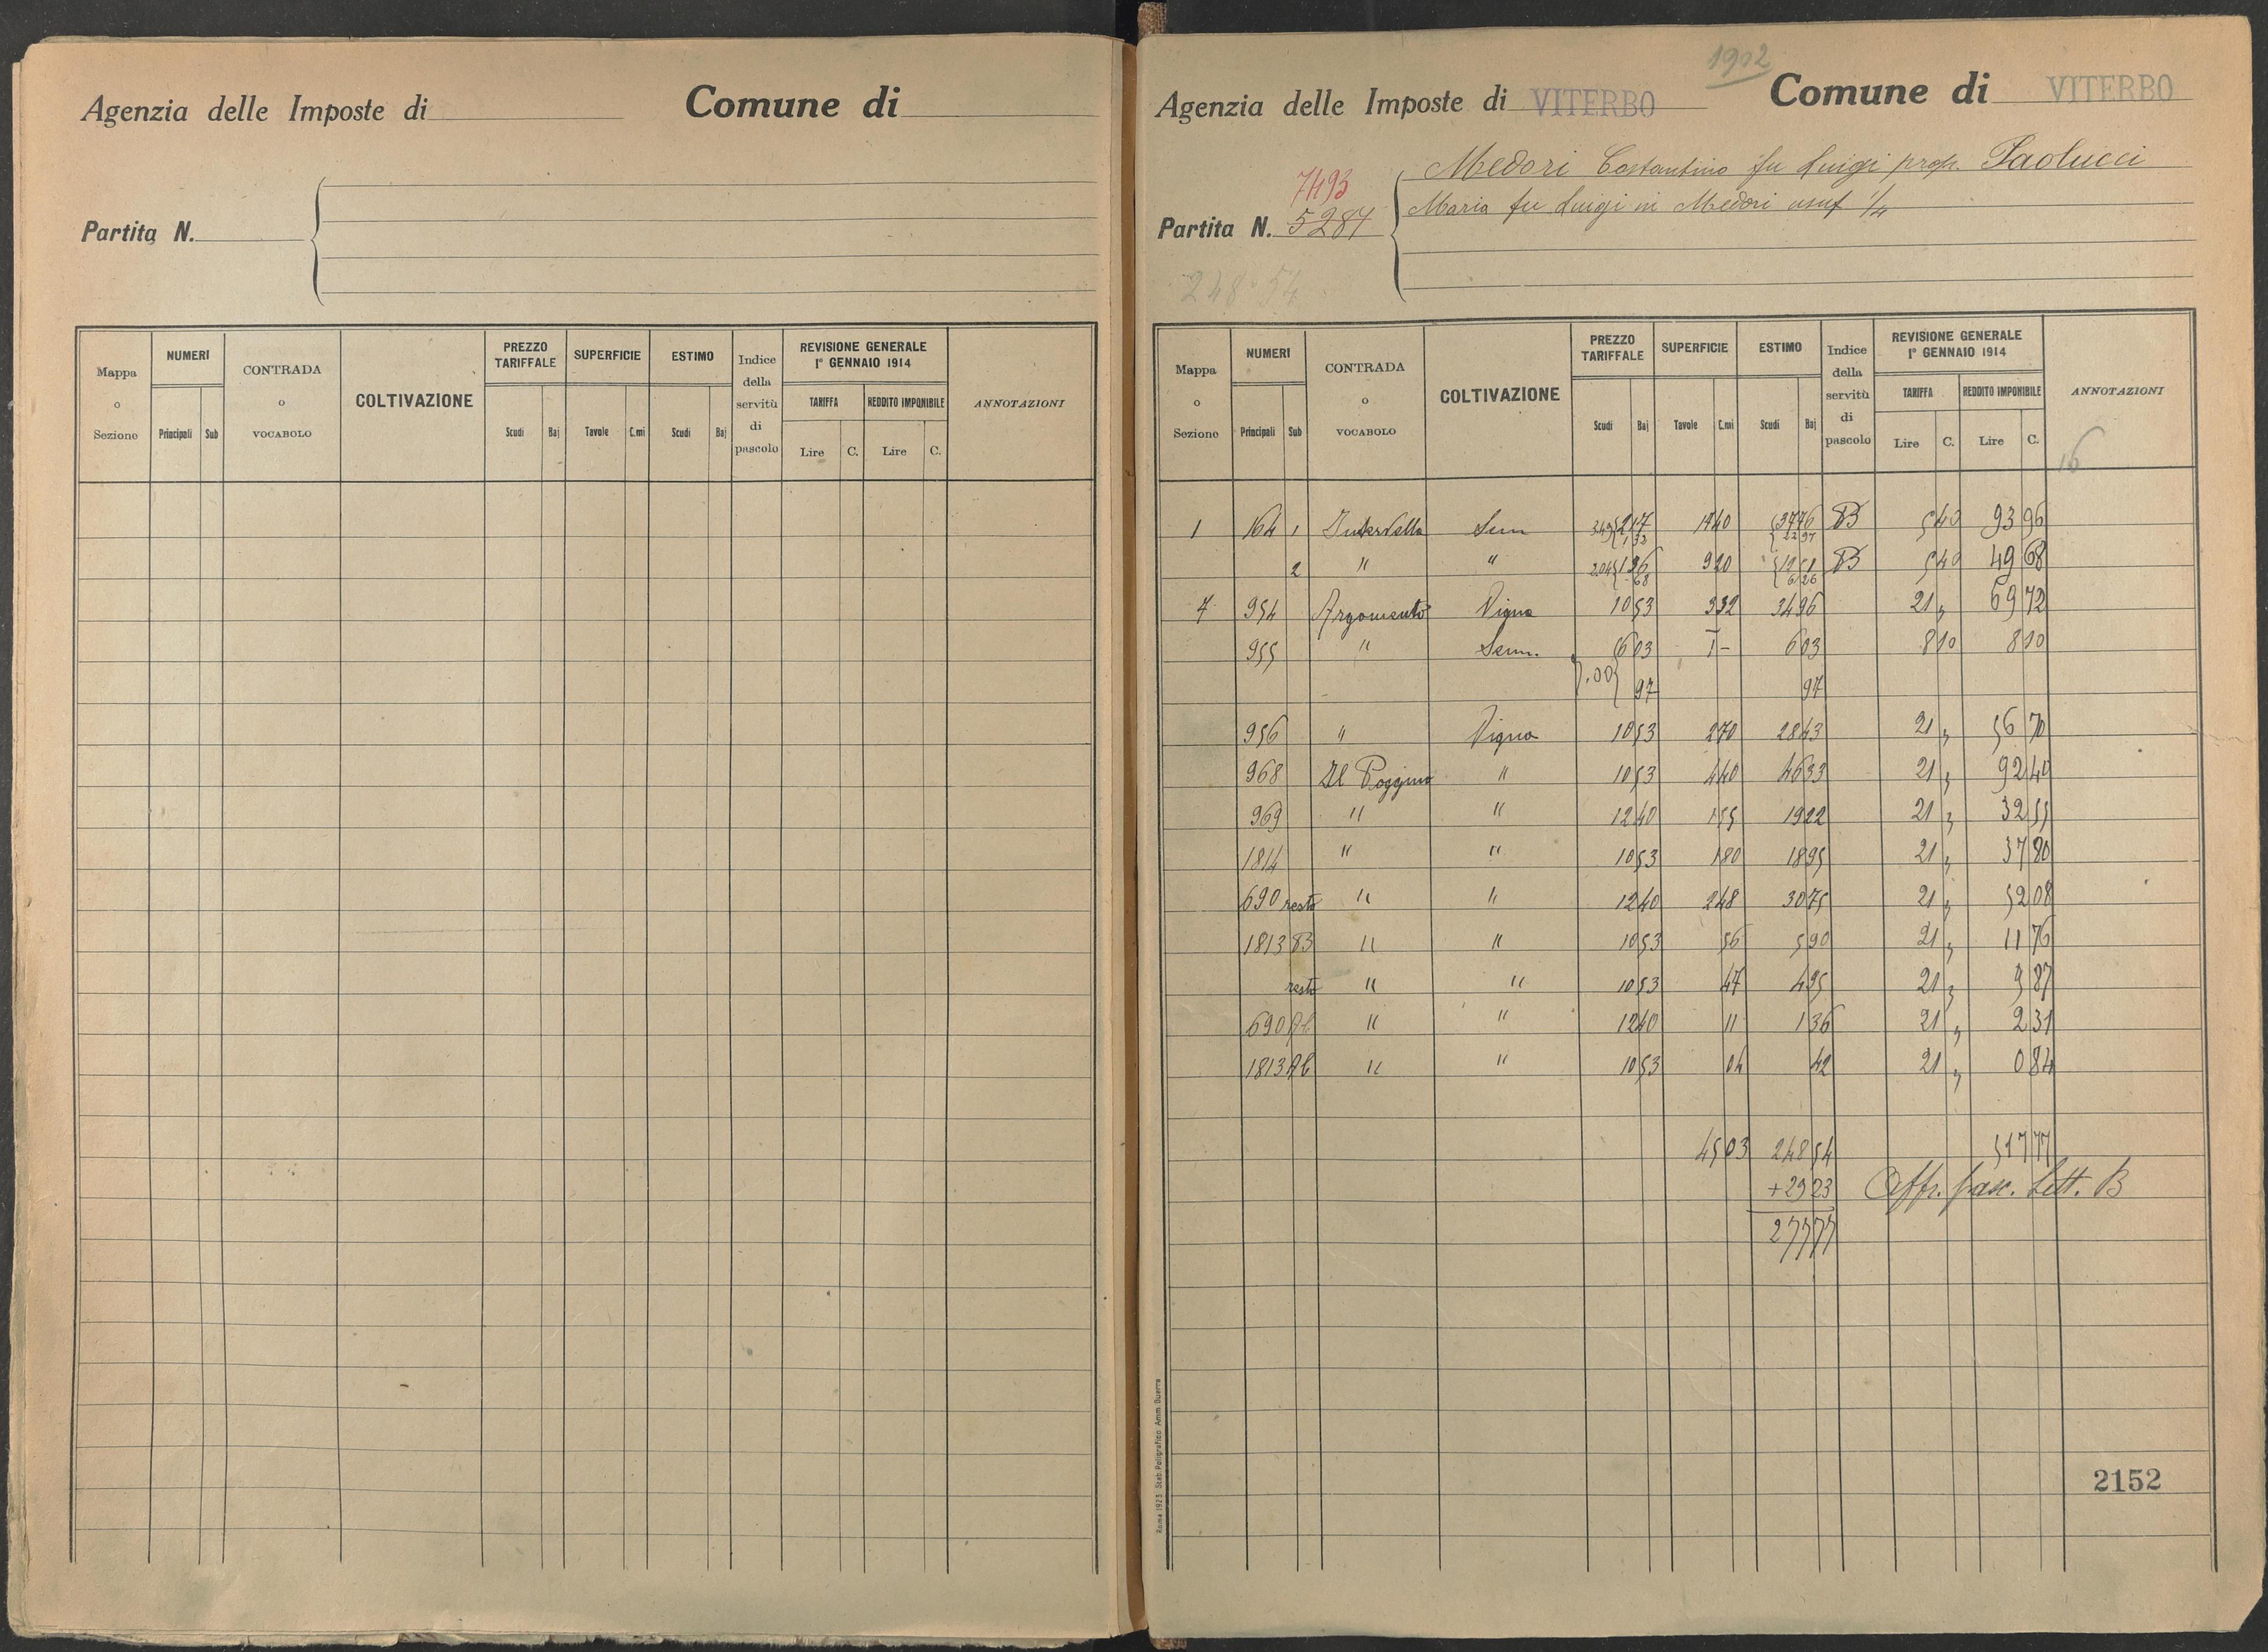 Agenzia delle Imposte di
Comune di
Partita N.
Mappa o Sezione
NUMERI
Principali Sub
CONTRADA o VOCABOLO
COLTIVAZIONE
PREZZO TARIFFALE
Scudi Baj
SUPERFICIE
Tavole C.mi
ESTIMO
Scudi Baj
Indice della servitù di pascolo
REVISIONE GENERALE
1° GENNAIO 1914
TARIFFA
Lire C.
REDDITO IMPONIBILE
Lire C.
ANNOTAZIONI
1902
Agenzia delle Imposte di VITERBO
Comune di VITERBO
7493
Partita N. 5284
Medori Costantino fu Luigi prop. Paolucci
Maria fu Luigi in Medori usuf 1/4
248.54
Mappa o Sezione
NUMERI
Principali Sub
CONTRADA o VOCABOLO
COLTIVAZIONE
PREZZO TARIFFALE
Scudi Baj
SUPERFICIE
Tavole C.mi
ESTIMO
Scudi Baj
Indice della servitù di pascolo
REVISIONE GENERALE
1° GENNAIO 1914
TARIFFA
Lire C.
REDDITO IMPONIBILE
Lire C.
ANNOTAZIONI
16
1 164 1 Sem 17 40 B 5 40 93 96
2 " " 9 20 B 5 40 49 68
4 954 Argomento Vigna 10 53 3 32 34 96 21 " 69 72
955 " Sem. 6 03 1 - 6 03 8 10 8 10
7.00 97 97
956 " Vigna 10 53 2 70 28 43 21 " 56 70
968 Il Poggino " 10 53 4 40 46 33 21 " 92 40
969 " " 12 40 1 55 19 22 21 " 32 55
1814 " " 10 53 1 80 18 95 21 " 37 80
690 resto " " 12 40 2 48 30 75 21 " 52 08
1813 B " " 10 53 56 5 90 21 " 11 76
resto " " 10 53 47 4 95 21 " 9 87
690 Ab " " 12 40 11 1 36 21 " 2 31
1813 Ab " " 10 53 04 42 21 " 0 84
45 03 248 54 517 77
+ 29 23 Aff. pasc. Lett. B
277 77
Roma 1923 Stab. Poligrafico Amm. Guerra
2152